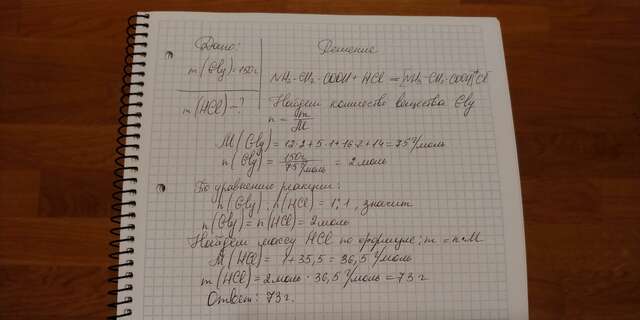 Дано:
m(Gly)=150г
m(HCl)-?
Решение
NH₂-CH₂-COOH + HCl = [NH₃-CH₂-COOH]⁺Cl⁻
Найдём количество вещества Gly
n = m/M
M(Gly) = 12·2+5·1+16·2+14=75 г/моль
n(Gly) = 150г/75 г/моль = 2 моль
По уравнению реакции:
n(Gly):n(HCl) = 1:1, значит
n(Gly)=n(HCl)=2моль
Найдём массу HCl по формуле: m = n·M
M(HCl) = 1+35,5 = 36,5 г/моль
m(HCl)=2моль·36,5 г/моль = 73 г
Ответ: 73 г.